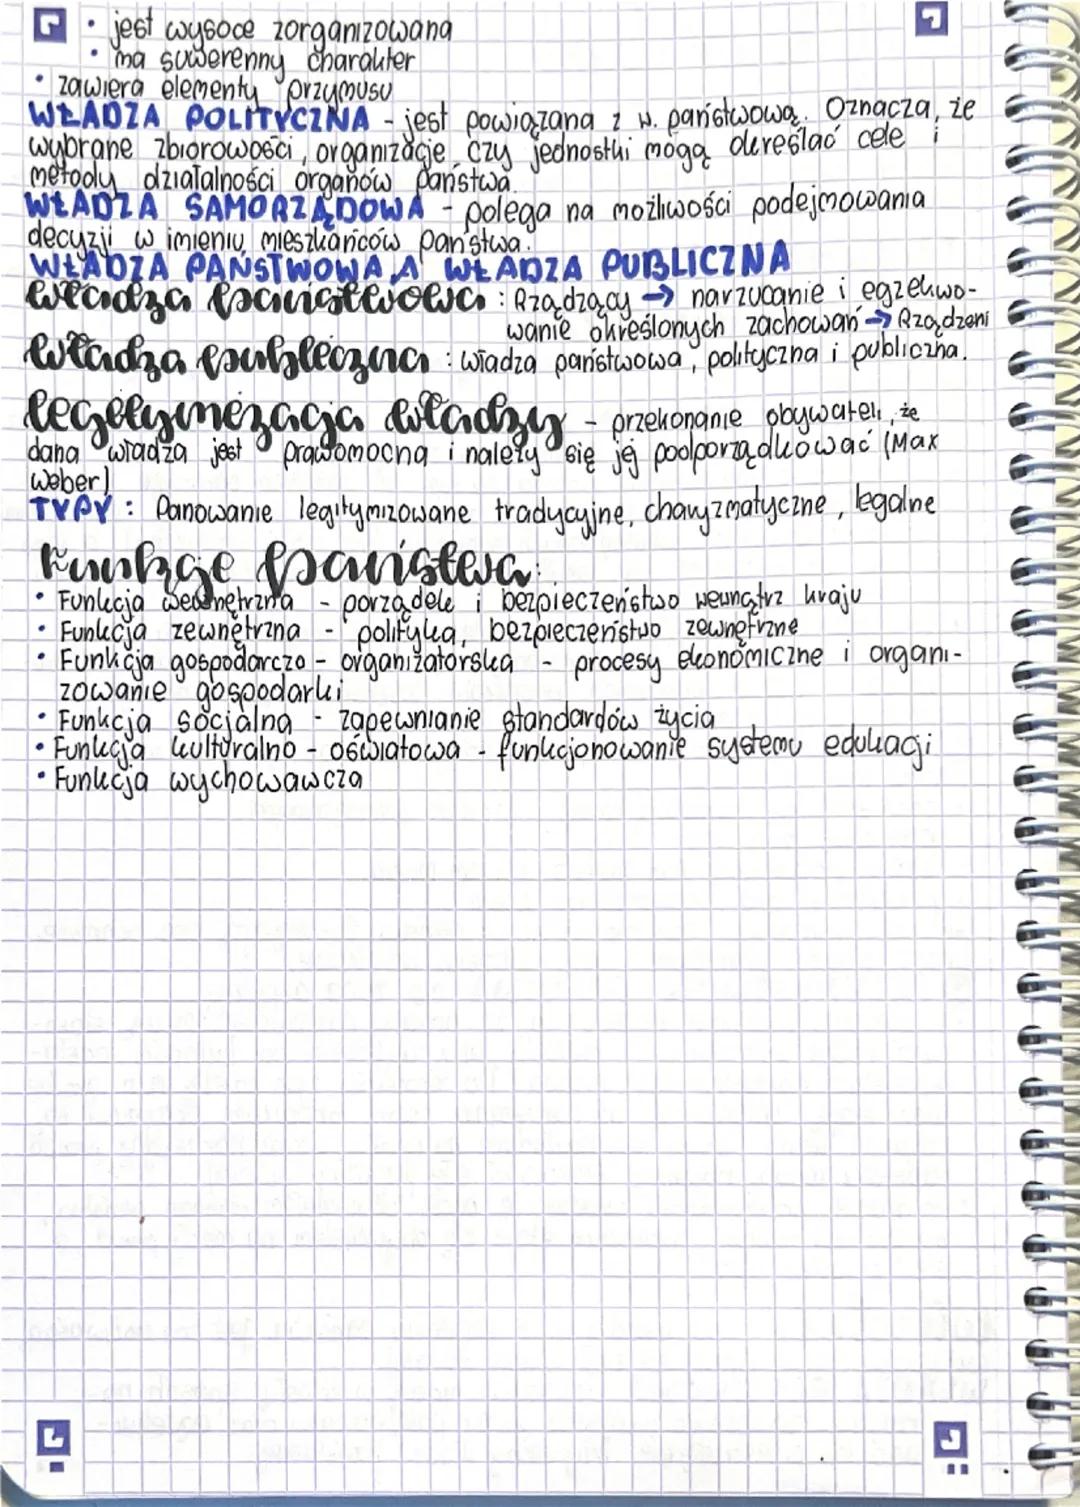 • jest wysoce zorganizowana
• ma suwerenny charakter
• zawiera elementy przymusu
WŁADZA POLITYCZNA - jest powiązana z w. państwową. Oznacza, że
wybrane zbiorowości, organizacje czy jednostki mogą określać cele i
metody działalności organów państwa.
WŁADZA SAMORZĄDOWA - polega na możliwości podejmowania
decyzji w imieniu mieszkańców państwa.
WŁADZA PAŃSTWOWA A WŁADZA PUBLICZNA
władza państwowa : Rządzący → narzucanie i egzekwo-
wanie określonych zachowań → Rządzeni
władza publiczna : władza państwowa, polityczna i publiczna.
legitymizacja władzy - przekonanie obywateli, że
dana władza jest prawomocna i należy się jej podporządkować (Max
Weber)
TYPY : Panowanie legitymizowane tradycyjne, charyzmatyczne, legalne
Funkcje państwa:
• Funkcja wewnętrzna - porządek i bezpieczeństwo wewnątrz kraju
• Funkcja zewnętrzna - polityka, bezpieczeństwo zewnętrzne
• Funkcja gospodarczo - organizatorska - procesy ekonomiczne i organi-
zowanie gospodarki
• Funkcja socjalna - zapewnianie standardów życia
• Funkcja kulturalno - oświatowa - funkcjonowanie systemu edukacji
• Funkcja wychowawcza